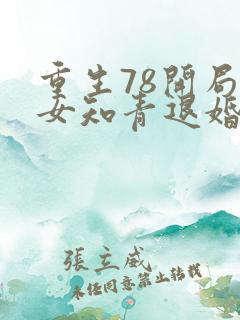 重生78開局
女知青退婚
張立威
未经同意禁止转载